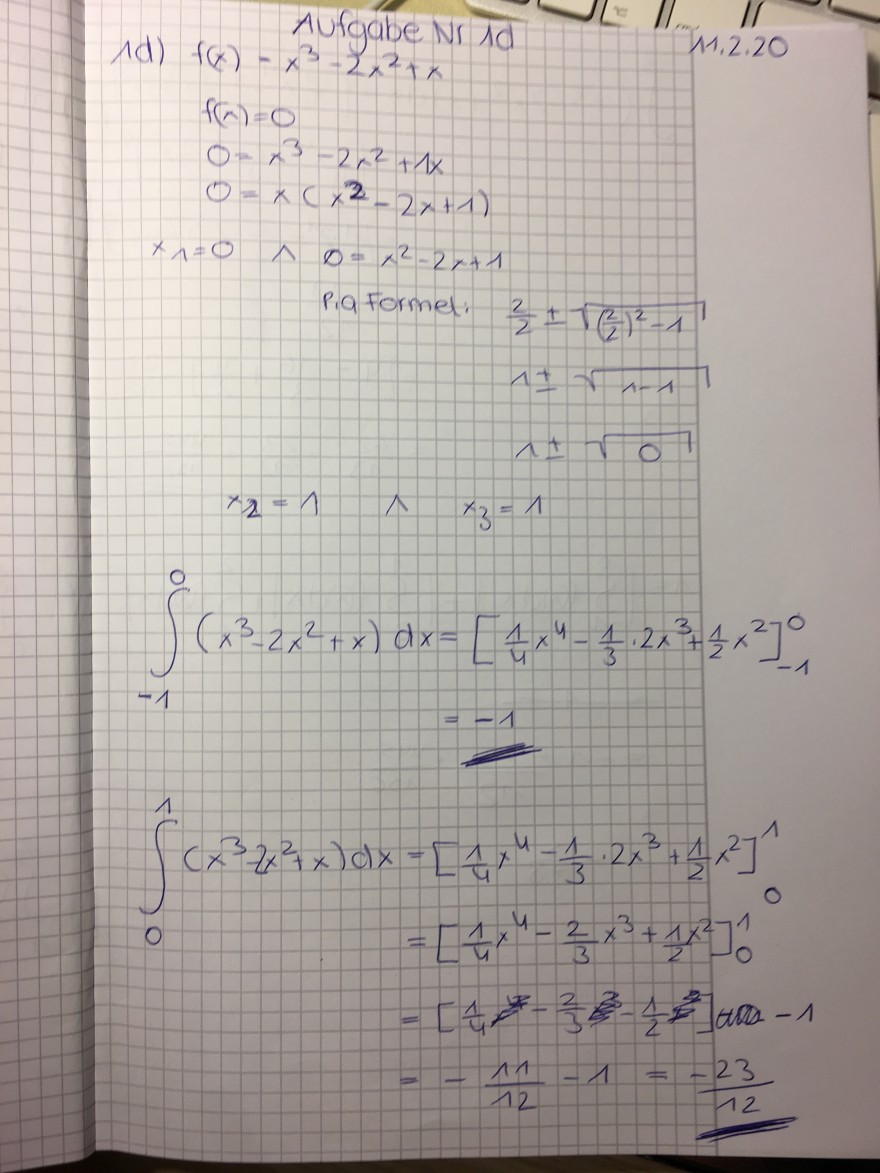 Aufgabe Nr 1d
11.2.20
1d) f(x) = x³ - 2x² + x
f(x) = 0
0 = x³ - 2x² + 1x
0 = x (x² - 2x + 1)
x₁ = 0 ∧ 0 = x² - 2x + 1
P,q Formel: 2/2 ± √((2/2)² - 1)
1 ± √(1 - 1)
1 ± √0
x₂ = 1 ∧ x₃ = 1
∫₋₁⁰ (x³ - 2x² + x) dx = [1/4 x⁴ - 1/3 · 2x³ + 1/2 x²]⁰₋₁
= -1
∫₀¹ (x³ - 2x² + x) dx = [1/4 x⁴ - 1/3 · 2x³ + 1/2 x²]¹₀
= [1/4 x⁴ - 2/3 x³ + 1/2 x²]¹₀
= [1/4 - 2/3 - 1/2] - 1
= - 11/12 - 1 = - 23/12